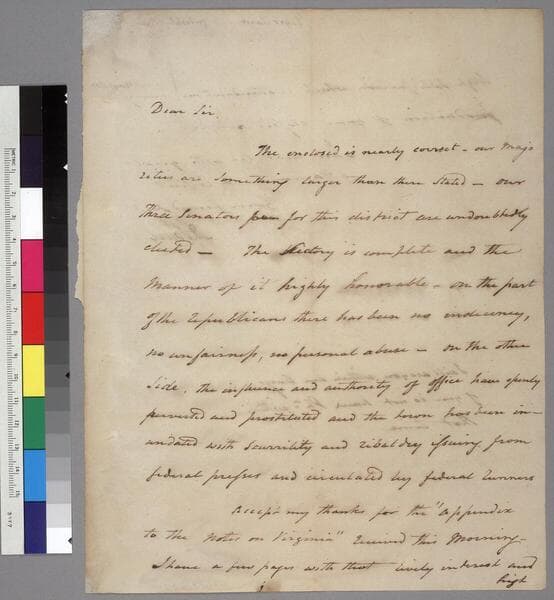 Dear Sir
The enclosed is nearly correct - our Majo
rities are something larger than there stated - our
three Senators for this district are undoubtedly
elected - The Victory is complete and the
Manner of it highly honorable - on the part
of the Republicans there has been no indecency,
no unfairness, no personal abuse - on the other
side, the influence and authority of office have openly
perverted and prostituted and the town has been in-
undated with scurrility and ribaldry issuing from
federal presses and circulated by federal runners
Accept my thanks for the "appendix
to the Notes on Virginia" received this Morning -
I have a few pages with that lively interest and
high